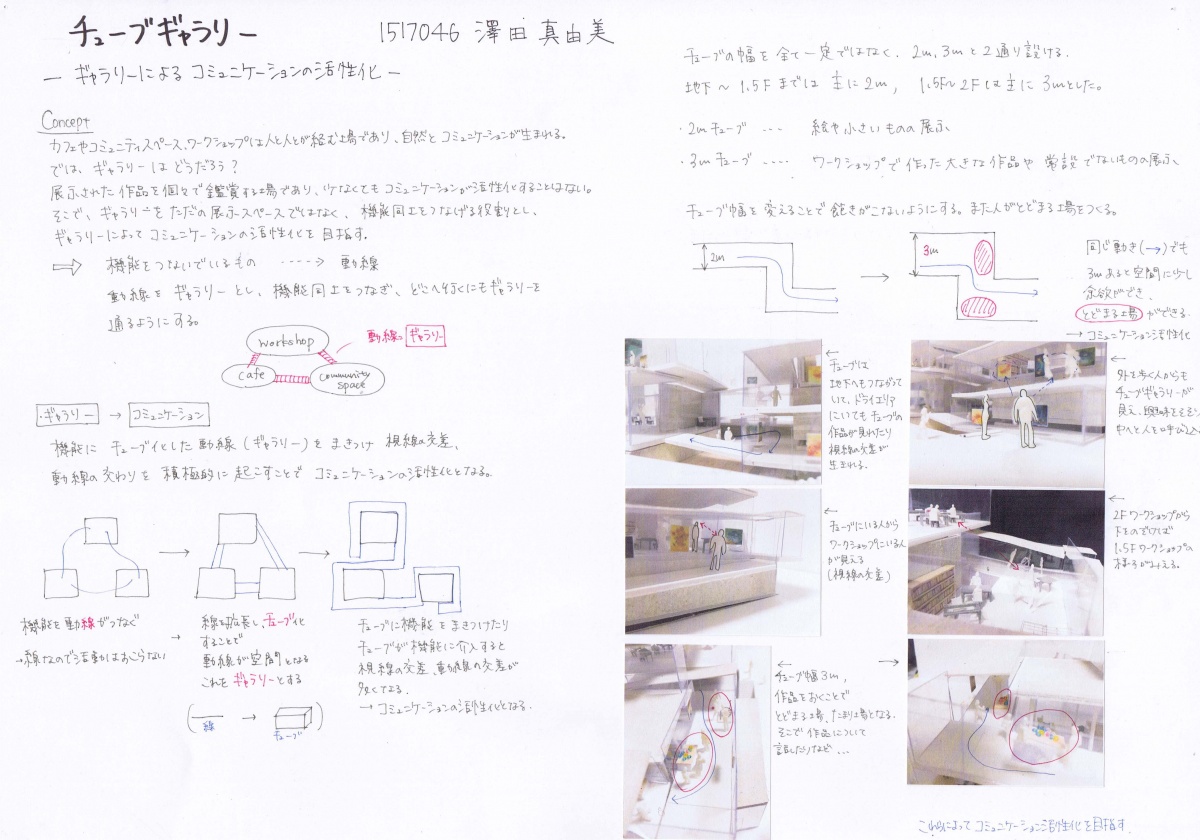 チューブギャラリー
1517046 澤田 真由美
— ギャラリーによる コミュニケーションの活性化 —
Concept
カフェやコミュニティスペース、ワークショップは人と人とが絡む場であり、自然とコミュニケーションが生まれる。
では、ギャラリーはどうだろう?
展示された作品を個々で鑑賞する場であり、少なくてもコミュニケーションが活性化することはない。
そこで、ギャラリーをただの展示スペースではなく、機能同士をつなげる役割とし、
ギャラリーによってコミュニケーションの活性化を目指す。
⇨ 機能をつないでいるもの ----→ 動線
動線をギャラリーとし、機能同士をつなぎ、どこへ行くにもギャラリーを
通るようにする。
workshop
cafe
community space
動線→ギャラリー
・ギャラリー → コミュニケーション
機能にチューブ化とした動線(ギャラリー)をまきつけ 視線の交差、
動線の交わりを積極的に起こすことでコミュニケーションの活性化となる。
機能を動線がつなぐ
→線なので活動はおこらない
→
線を拡張し、チューブ化
することで
動線が空間となる
これをギャラリーとする
(線 → チューブ)
チューブに機能をまきつけたり
チューブが機能に介入すると
視線の交差、動線の交差が
多くなる。
→ コミュニケーションの活性化となる。
チューブの幅を全て一定ではなく、2m,3mと2通り設ける。
地下〜1.5Fまでは主に2m, 1.5F〜2Fは主に3mとした。
・2mチューブ --- 絵や小さいものの展示
・3mチューブ ---- ワークショップで作った大きな作品や常設でないものの展示、
チューブ幅を変えることで飽きがこないようにする。また人がとどまる場をつくる。
2m
→
3m
同じ動き(→)でも
3mあると空間に少し
余欲ができ、
とどまる場ができる。
→ コミュニケーション活性化
←
チューブは
地下へもつながって
いて、ドライエリア
にいてもチューブの
作品が見れたり
視線の交差が
生まれる。
←
外を歩く人からも
チューブギャラリーが
見え、興味をそそり
中へと人を呼び込
←
チューブにいる人から
ワークショップにいる人
が見える
(視線の交差)
←
2Fワークショップから
下をのぞけば
1.5Fワークショップの
様子がみえる。
←
→
チューブ幅3m,
作品をおくことで
とどまる場、たまり場となる。
そこで作品について
話したりなど...
これらによってコミュニケーション活性化を目指す.